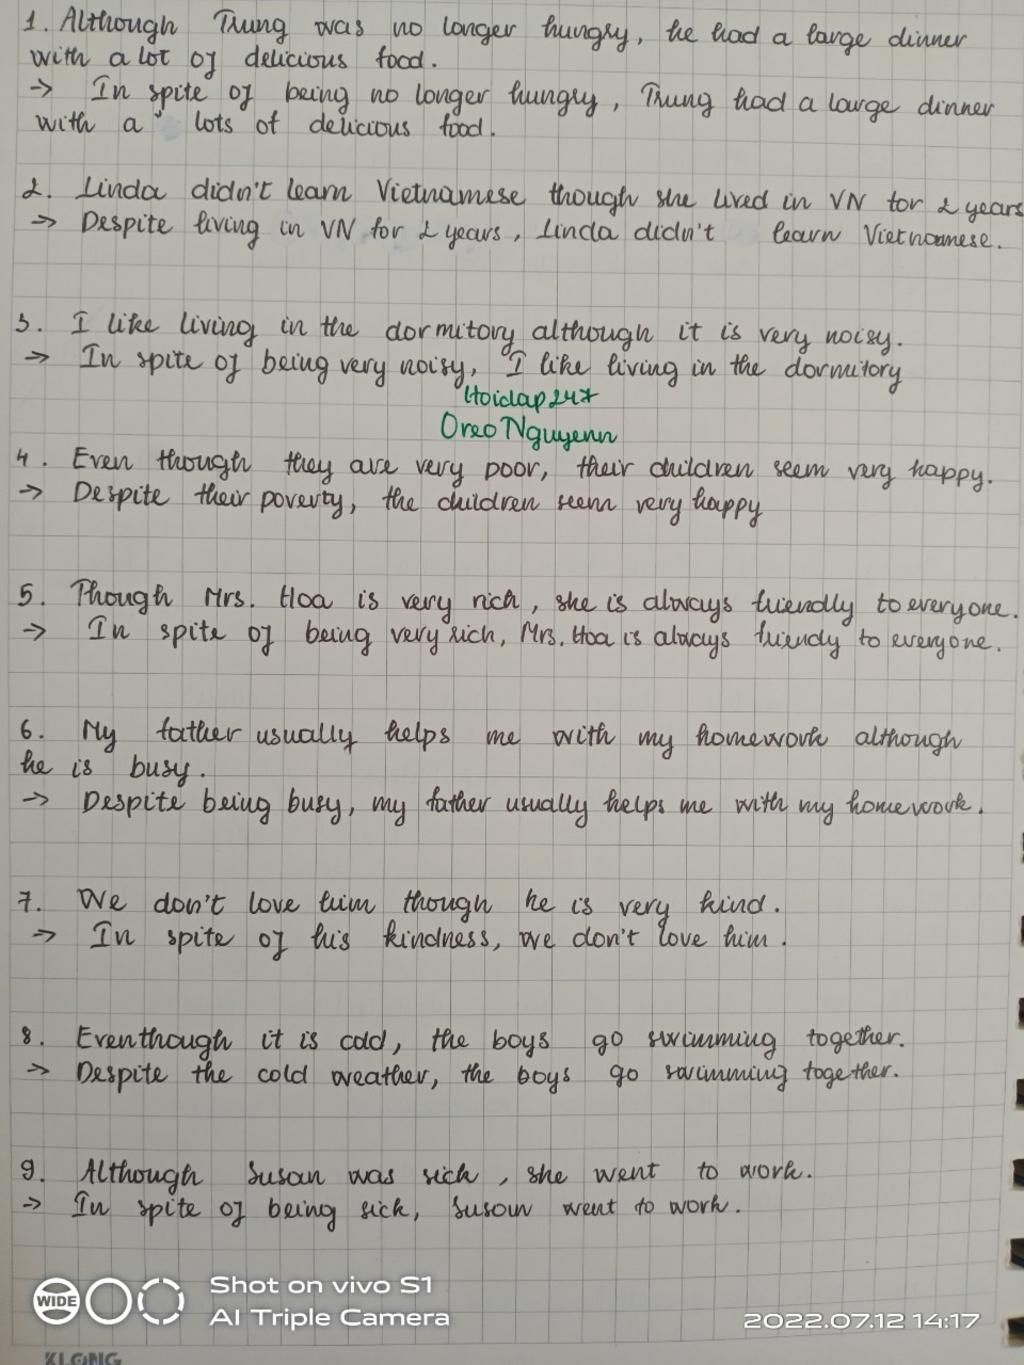 1. Although Trung was no longer hungry, he had a large dinner
with a lot of delicious food.
→ In spite of being no longer hungry, Trung had a large dinner
with a lots of delicious food.
2. Linda didn't learn Vietnamese though she lived in VN for 2 years
→ Despite living in VN for 2 years, Linda didn't learn Vietnamese.
3. I like living in the dormitory although it is very noisy.
→ In spite of being very noisy, I like living in the dormitory
Hoidap247
Oreo Nguyenn
4. Even though they are very poor, their children seem very happy.
→ Despite their poverty, the children seem very happy
5. Though Mrs. Hoa is very rich, she is always friendly to everyone.
→ In spite of being very rich, Mrs. Hoa is always friendy to everyone.
6. My father usually helps me with my homework although
he is busy.
→ Despite being busy, my father usually helps me with my homework.
7. We don't love him though he is very kind.
→ In spite of his kindness, we don't love him.
8. Eventhough it is cold, the boys go swimming together.
→ Despite the cold weather, the boys go swimming together.
9. Although Susan was sick, she went to work.
→ In spite of being sick, Susan went to work.
WIDE
Shot on vivo S1
AI Triple Camera
2022.07.12 14:17
KLONG